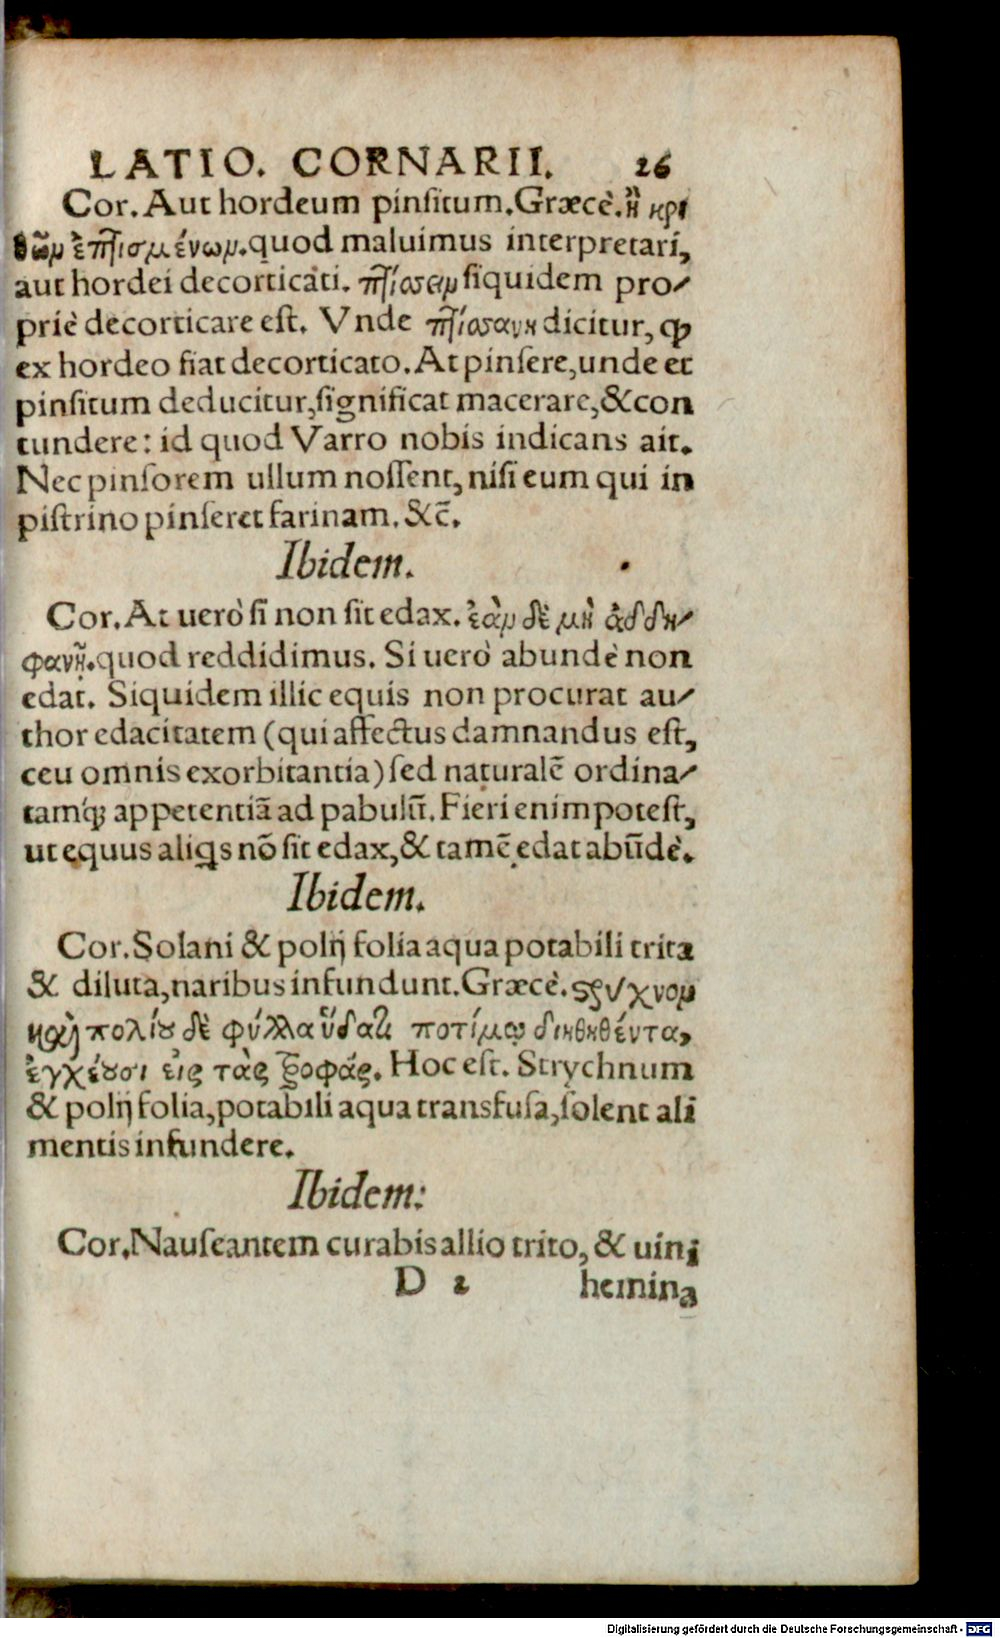 LATIO. CORNARII. 26
Cor. Aut hordeum pinsitum. Græcè. ἢ κρι
θῶν ἐπτισμένων. quod maluimus interpretari,
aut hordei decorticati. πτίσσειν siquidem pro-
priè decorticare est. Vnde πτισσάνη dicitur, ꝙ
ex hordeo fiat decorticato. At pinsere, unde et
pinsitum deducitur, significat macerare, & con
tundere: id quod Varro nobis indicans ait.
Nec pinsorem ullum nossent, nisi eum qui in
pistrino pinseret farinam. &c̄.
Ibidem.
Cor. At uerò si non sit edax. ἐὰν δὲ μὴ ἀδδη-
φανῆ. quod reddidimus. Si uerò abundè non
edat. Siquidem illic equis non procurat au-
thor edacitatem (qui affectus damnandus est,
ceu omnis exorbitantia) sed naturalē ordina-
tamq́; appetentiā ad pabulū. Fieri enim potest,
ut equus aliq̇s nō sit edax, & tamē edat abūdè.
Ibidem.
Cor. Solani & polij folia aqua potabili trita
& diluta, naribus infundunt. Græcè. στρύχνον
καὶ πολίου δὲ φύλλα ὕδατι ποτίμῳ διηθηθέντα,
ἐγχέουσι εἰς τὰς τροφάς. Hoc est. Strychnum
& polij folia, potabili aqua transfusa, solent ali
mentis infundere.
Ibidem:
Cor. Nauseantem curabis allio trito, & uini
D 2 hemina
Digitalisierung gefördert durch die Deutsche Forschungsgemeinschaft - DFG